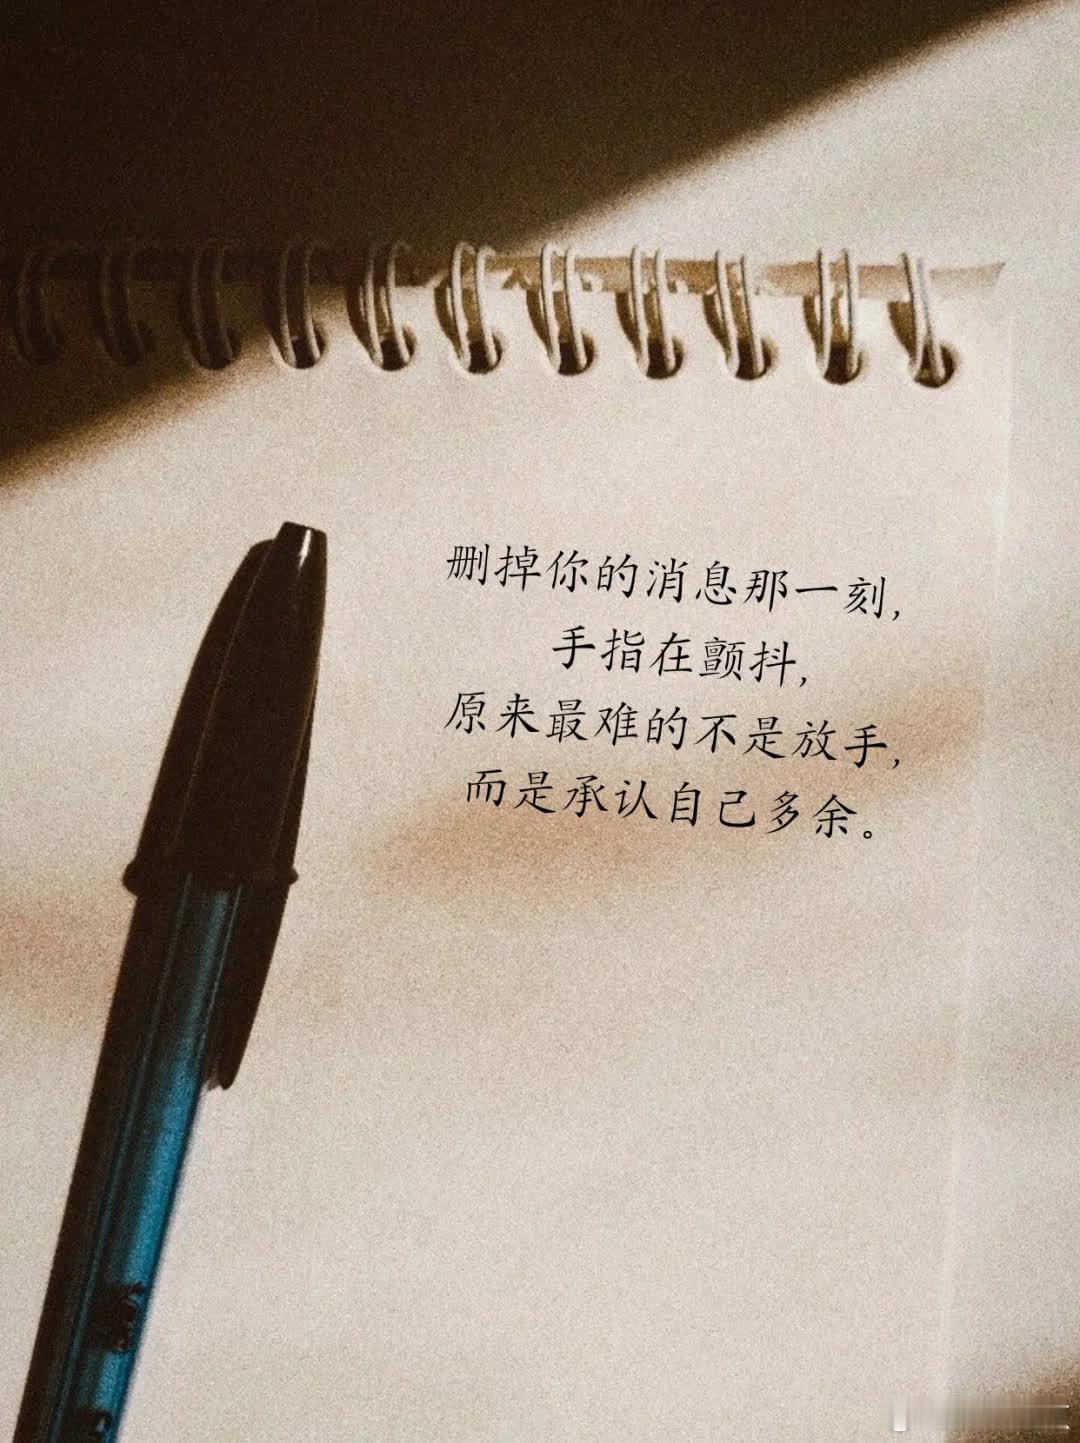 删掉你的消息那一刻,
手指在颤抖,
原来最难的不是放手,
而是承认自己多余。